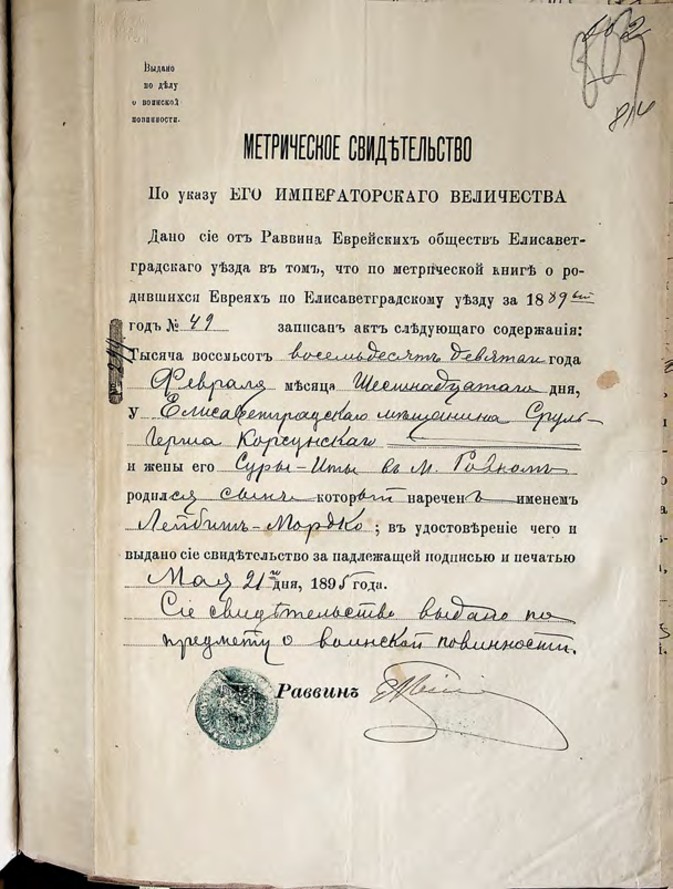 802
814
Выдано
по дѣлу
о воинской
повинности.
МЕТРИЧЕСКОЕ СВИДѢТЕЛЬСТВО
По указу ЕГО ИМПЕРАТОРСКАГО ВЕЛИЧЕСТВА
Дано сіе отъ Раввина Еврейскихъ обществъ Елисавет-
градскаго уѣзда въ томъ, что по метрической книгѣ о ро-
дившихся Евреяхъ по Елисаветградскому уѣзду за 1889 ый
годъ № 49 записанъ актъ слѣдующаго содержанія:
Тысяча восемьсотъ восемьдесятъ девятаго года
Февраля мѣсяца Шестнадцатаго дня,
У Елисаветградскаго мѣщанина Сруль-
Герша Корсунскаго
и жены его Суры-Иты въ м. Ровномъ
родился сынъ который нареченъ именемъ
Лейбишъ-Мордко; въ удостовѣреніе чего и
выдано сіе свидѣтельство за надлежащей подписью и печатью
Мая 21 дня, 1895 года.
Сіе свидѣтельство выдано по
предмету о воинской повинности.
Раввинъ